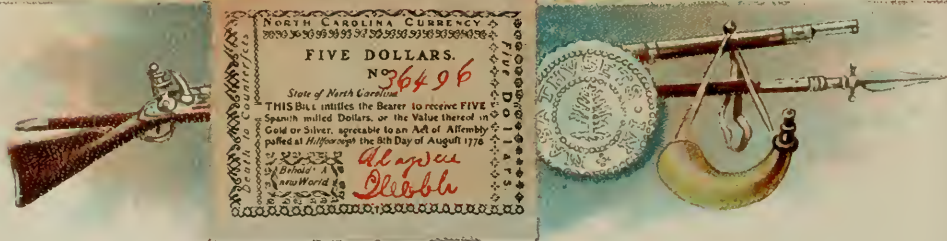 NORTH CAROLINA CURRENCY
FIVE DOLLARS.
No 36496
State of North Carolina
THIS BILL intitles the Bearer to receive FIVE
Spanish milled Dollars, or the Value thereof in
Gold or Silver, agreeable to an Act of Assembly
passed at Hillsborough the 8th Day of August 1778
Behold A
new World
Death to Counterfeits
Five Dollars